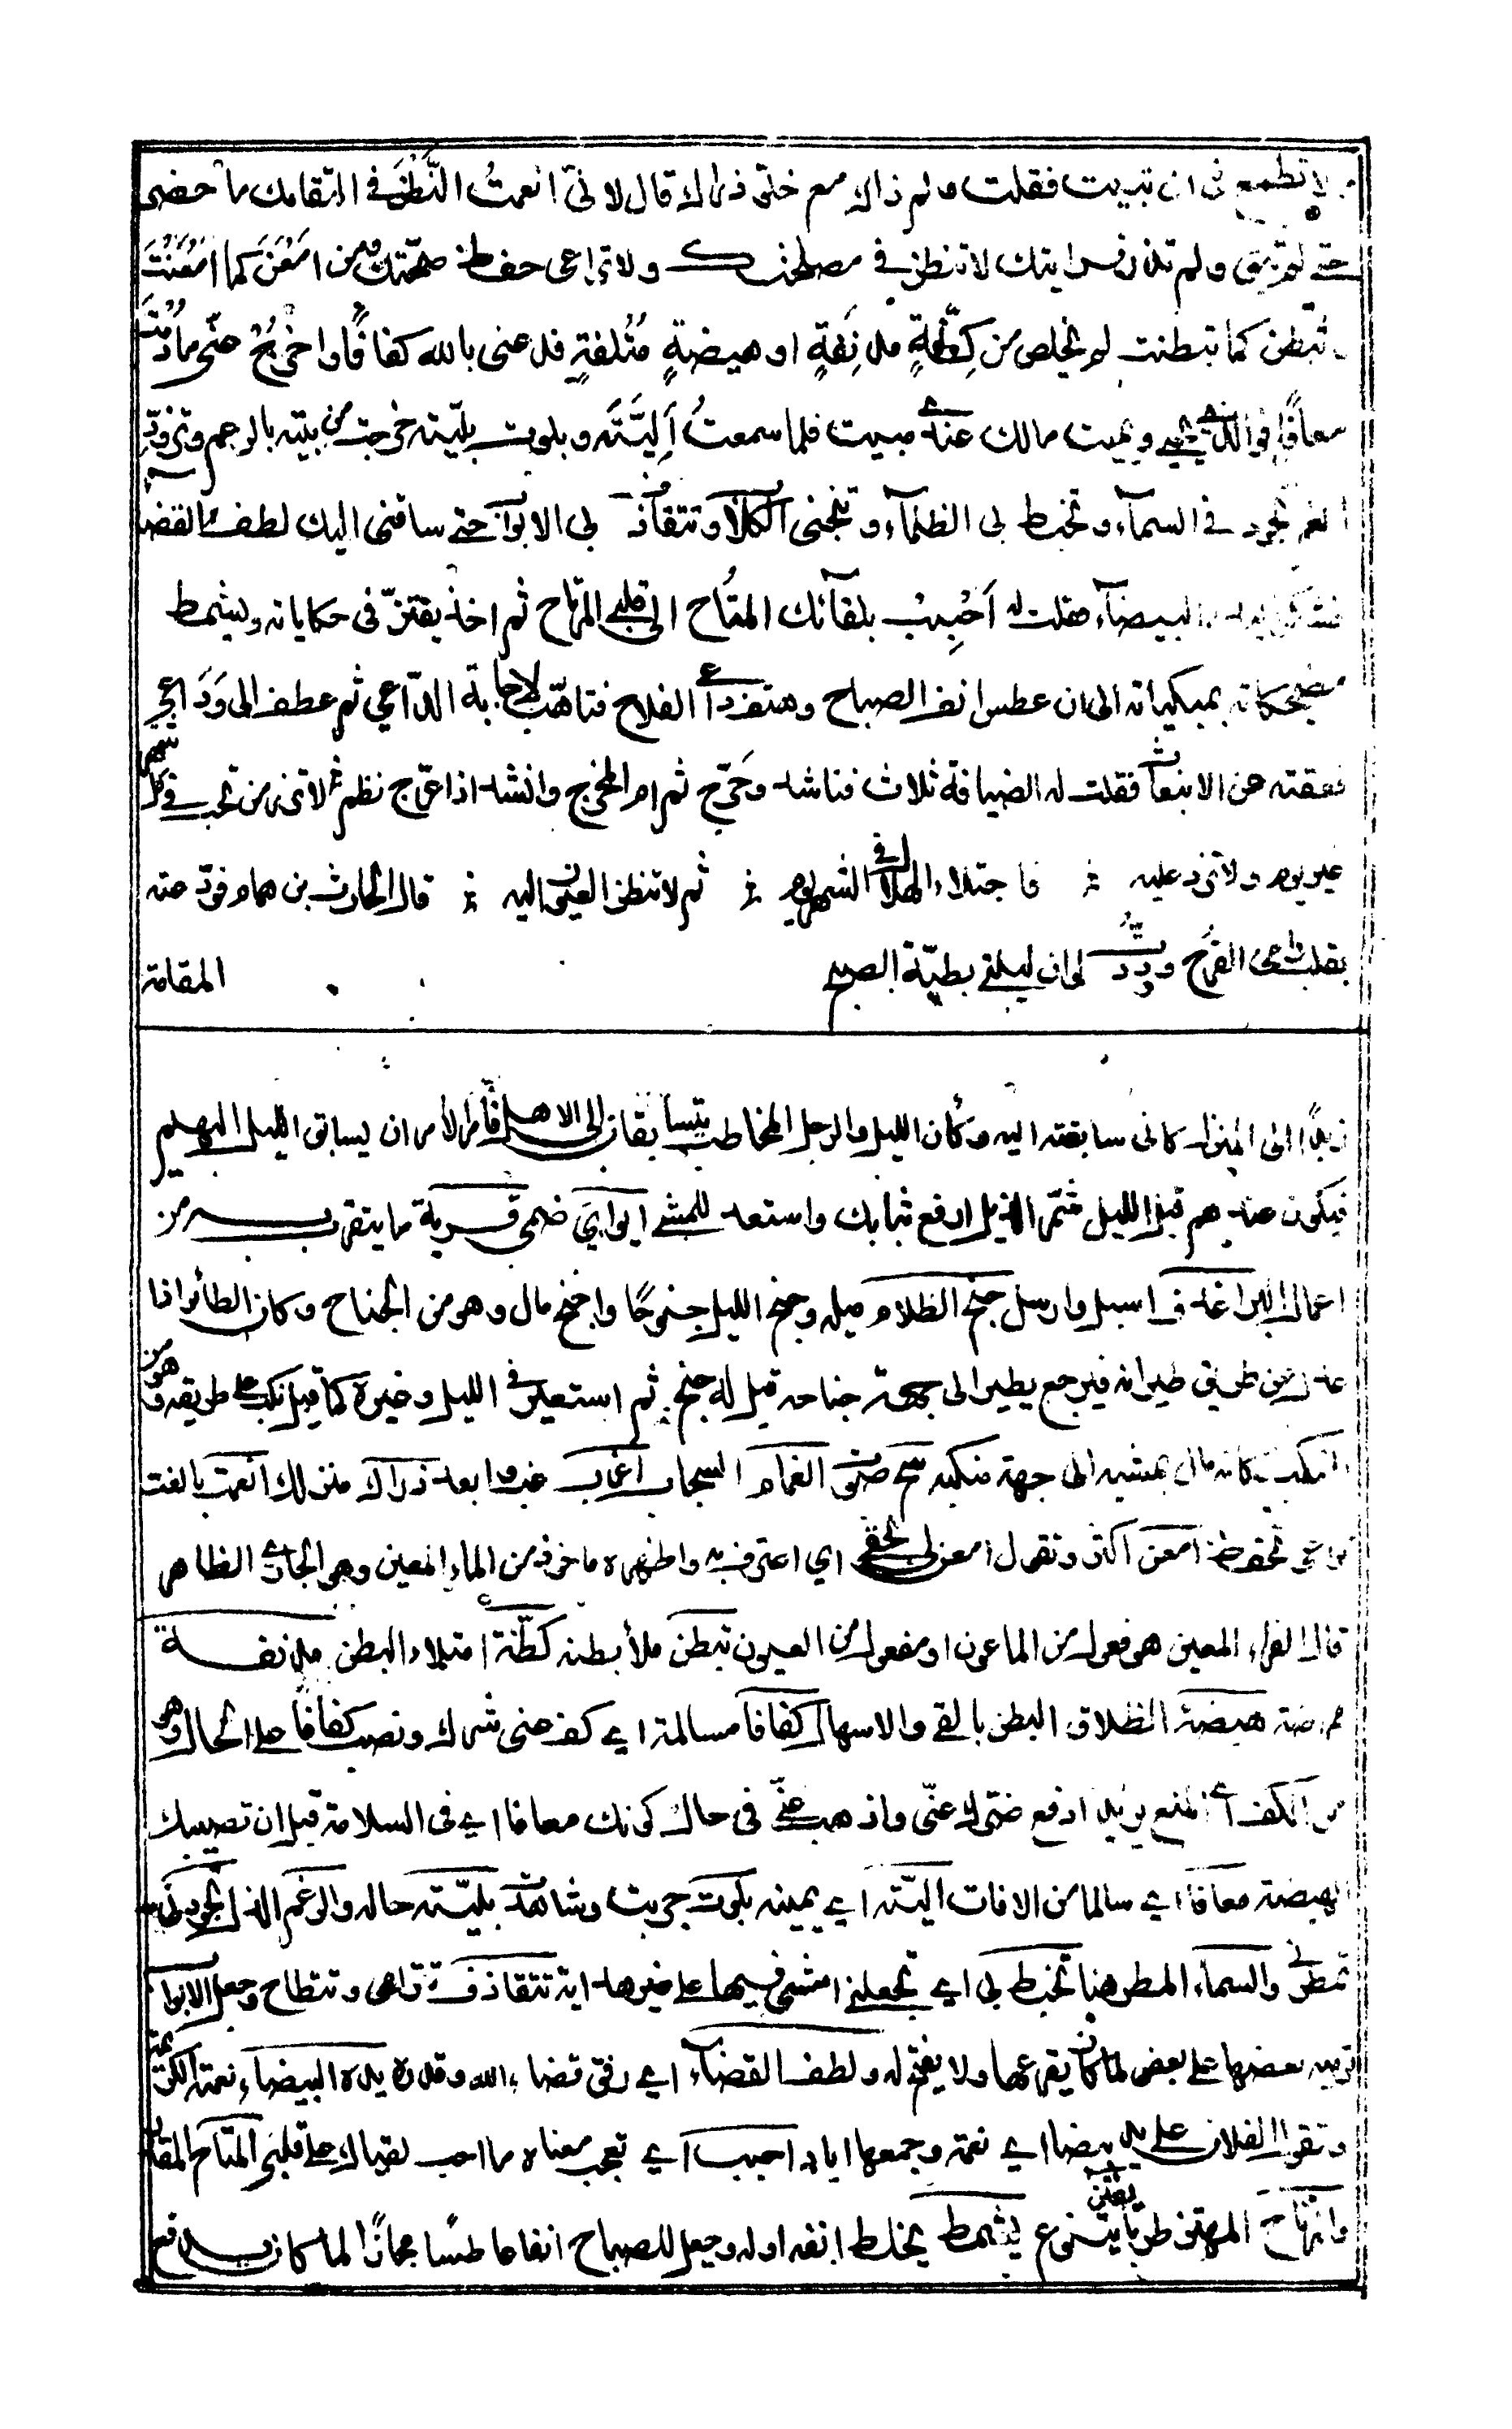 ولا تطمع في ان تبيت فقلت ولم ذاك مع خلق ذراك قال لاني انعمت النظر في التقامك ما حضر
حتى لم تبق ولم تذر فرايتك لا تنظر في مصلحتك ولا تراعى حفظ صحتك ومن امعن كما امعنت
وتبطن كما تبطنت لم يخلص من كظة مدنفة او هيضة متلفة فدعنى بالله كفافا واخرج عنى ما دمت
معافا فو الذي يحيي ويميت مالك عندي مبيت فلما سمعت اليته وبلوت بليته خرجت من بيته بالرغم وتزود
الغم تجودني السماء وتخبط بي الظلماء وتنبحني الكلاب وتتقاذف بي الابواب حتى ساقنى اليك لطف القضا
فشكرا ليده البيضاء فقلت له احبب بلقائك المتاح الى قلبي المرتاح ثم اخذ يفتن في حكاياته ويشمط
مضحكاته بمبكياته الى ان عطس انف الصباح وهتف داعي الفلاح فتاهب لاجابة الداعي ثم عطف الى وداعي
فعقته عن الانبعاث فقلت له الضيافة ثلاث فناشد وحرج ثم ام المخرج وانشد اذ عرج نظم لا تزر من تحب في كل شهر
غير يوم ولا تزد عليه فاجتلاء الهلال في الشهر يوم ثم لا تنظر العيون اليه قال الحارث بن همام فودعته
بقلب دامى القرح وددت لو ان ليلتي بطية الصبح المقامة
الى المنزل كانى سابقته اليه وكأن الليل والرجل المخاطب يتسابقان الى الاهل فأمر لأمر ان يسابق الليل البهيم
فيكون عندهم قبل الليل شمر الذيل ارفع ثيابك واستعد للمشى ايوائي ضمى قربة ما يتقرب به من
اعمال البر اغد ف اسبل وارسل جنح الظلام ميله وجنح الليل جنوحا واجنح مال وهو من الجناح وكان الطائر اذا
عدل عن طريق طيرانه فيرجع يطير الى جهة جناحه قيل له جنح ثم استعير في الليل وغيره كما قيل نكب على طريقه وهو من
المنكب كانه مال بمشيه الى جهة منكبه سح صبّ الغمام السحاب اغاب غب ابعد ذراك منزلك انعمت بالغت
تراعى تحفظ امعن اكثر وتقول امعن لى بحقي اي اعترف به واظهره ماخوذ من الماء المعين وهو الجاري الظاهر
قال الفراء المعين هو فعول من الماعون او مفعول من العيون تبطن ملأ بطنه كظة امتلاء البطن مدنفة
ممرضة هيضة انطلاق البطن بالقي والاسهال كفافا مسالمة اي كف عنى شرك ونصب كفافا على الحال وهو
من الكف اي المنع يريد ادفع ضرك عنّي واذهب عنّي في حال كونك معافا اي في السلامة قبل ان تصيبك
الهيضة معافا اي سالما من الافات اليته اي يمينه بلوت جربت وشاهدت بليته حاله والرغم الذل تجودني
تمطرني والسماء المطر هنا تخبط بى اي تجعلني امشى فيها على غير هداية تتقاذف تترامى وتتطارح وجعل الابواب
ترميه بعضها على بعض لما كان يقرعها ولا يفتح له ولطف القضاء اي رفق قضاء الله وقدره يده البيضاء نعمته الكريمة
وتقول لفلان على يد بيضا اي نعمة وجمعها اياد احبب اي تعجب معناه ما احب لقياك على قلبي المتاح المقدر
وارتاح المهتز طربا يفتن يتنوع يشمط يخلط انفه اوله وجعل للصباح انفا عاطسا مجازا لما كان يندفع